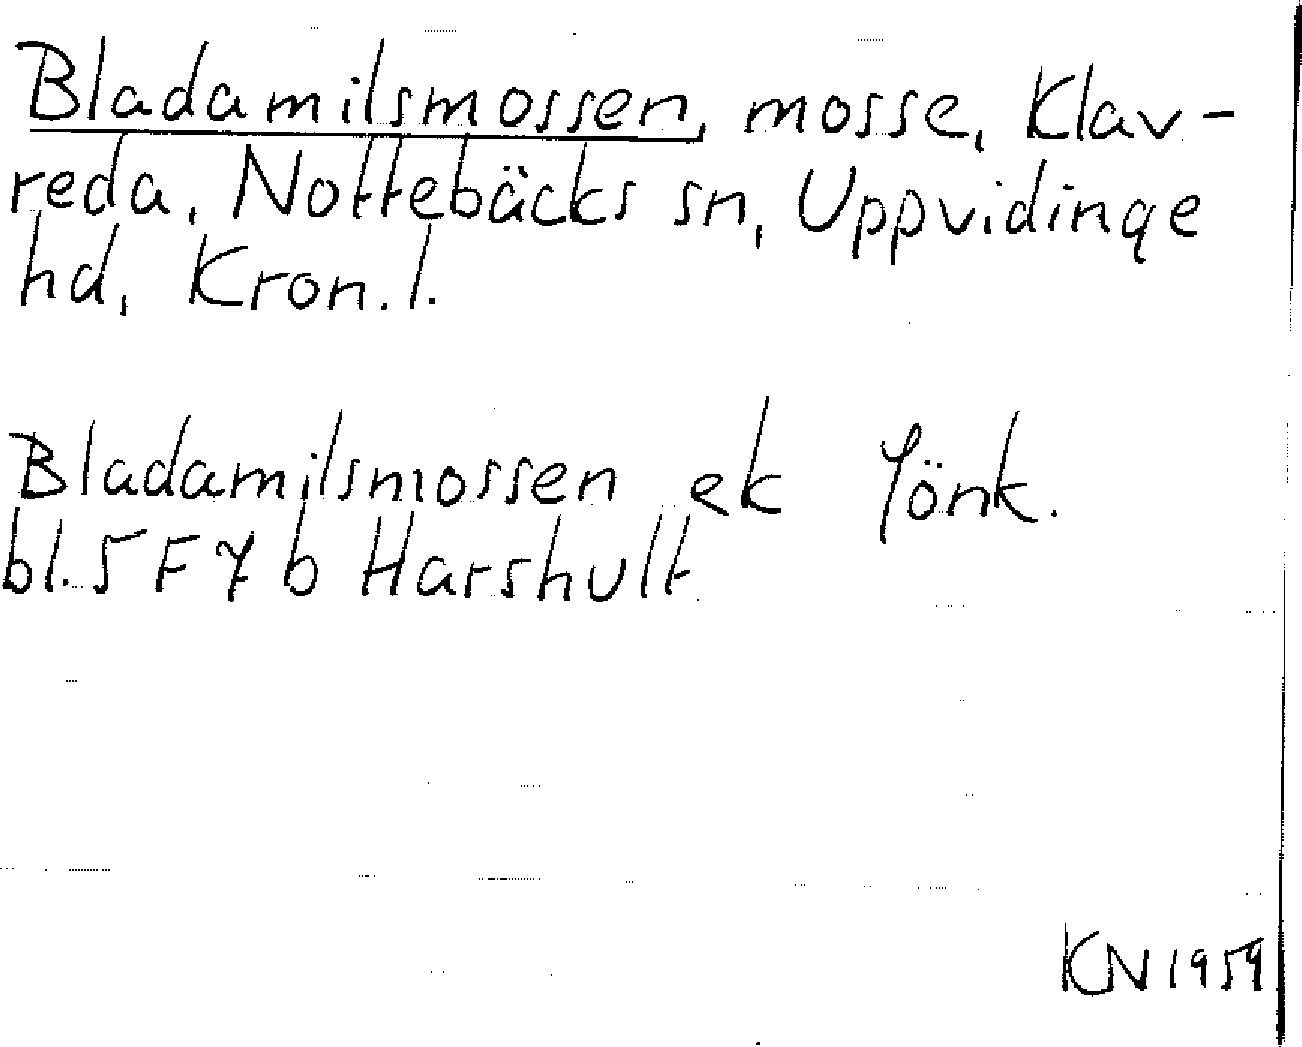 Bladamilsmossen, mosse, Klav-
reda, Nottebäcks sn, Uppvidinge
hd, Kron. l.
Bladamilsmossen ek Jönk.
bl. 5 F 7 b Harshult
KN 1959